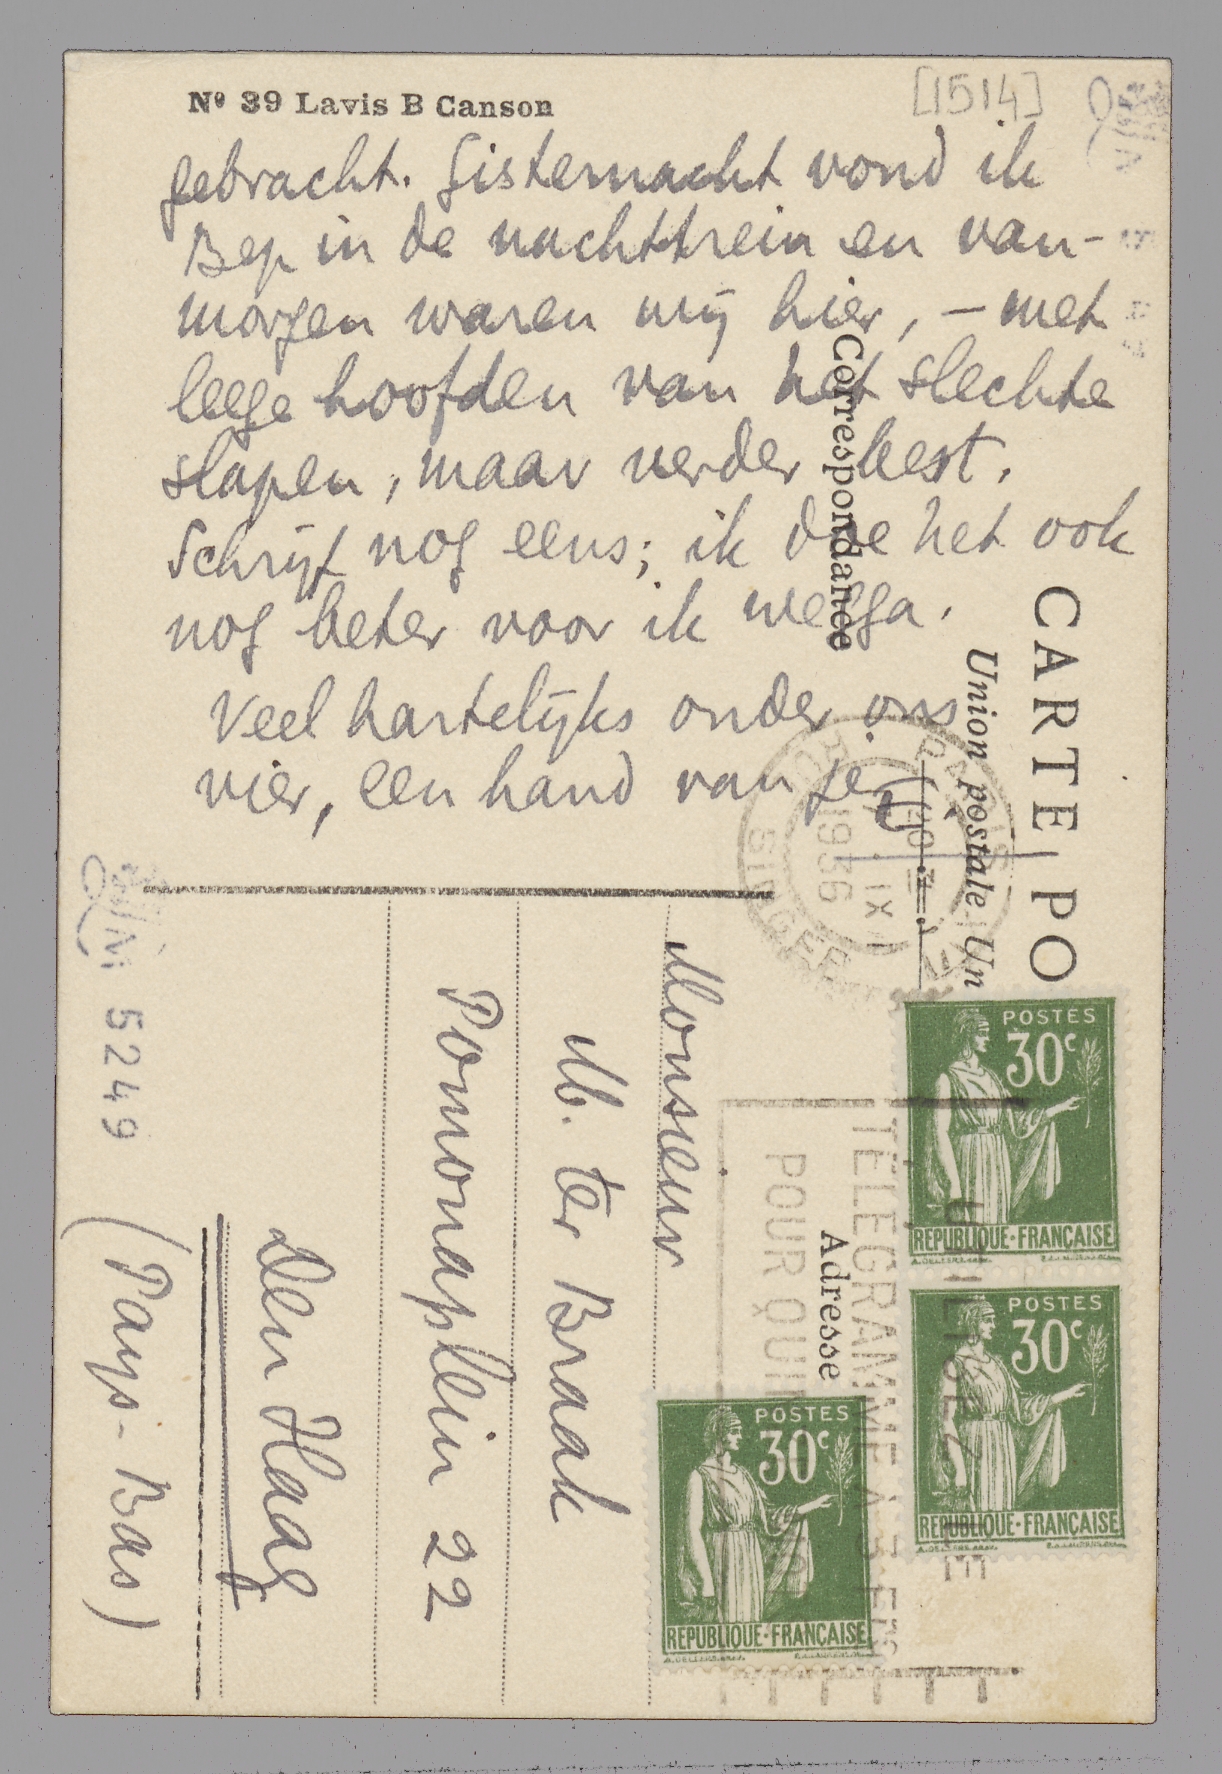 Nº 39 Lavis B Canson
[1514]
gebracht. Gisternacht vond ik
Bep in de nachttrein en van-
morgen waren wij hier, – met
leege hoofden van het slechte
slapen, maar verder best.
Schrijf nog eens; ik doe het ook
nog beter voor ik wegga.
Veel hartelijks onder ons
vier, een hand van je
CARTE PO
Union postale Un
Correspondance
Adresse
Monsieur
M. ter Braak
Pomonaplein 22
Den Haag
(Pays-Bas)
5249
1936
IX
POSTES
30c
REPUBLIQUE·FRANÇAISE
POSTES
30c
REPUBLIQUE·FRANÇAISE
POSTES
30c
REPUBLIQUE·FRANÇAISE
UTILISEZ LE
TÉLÉGRAMME A
POUR QUI